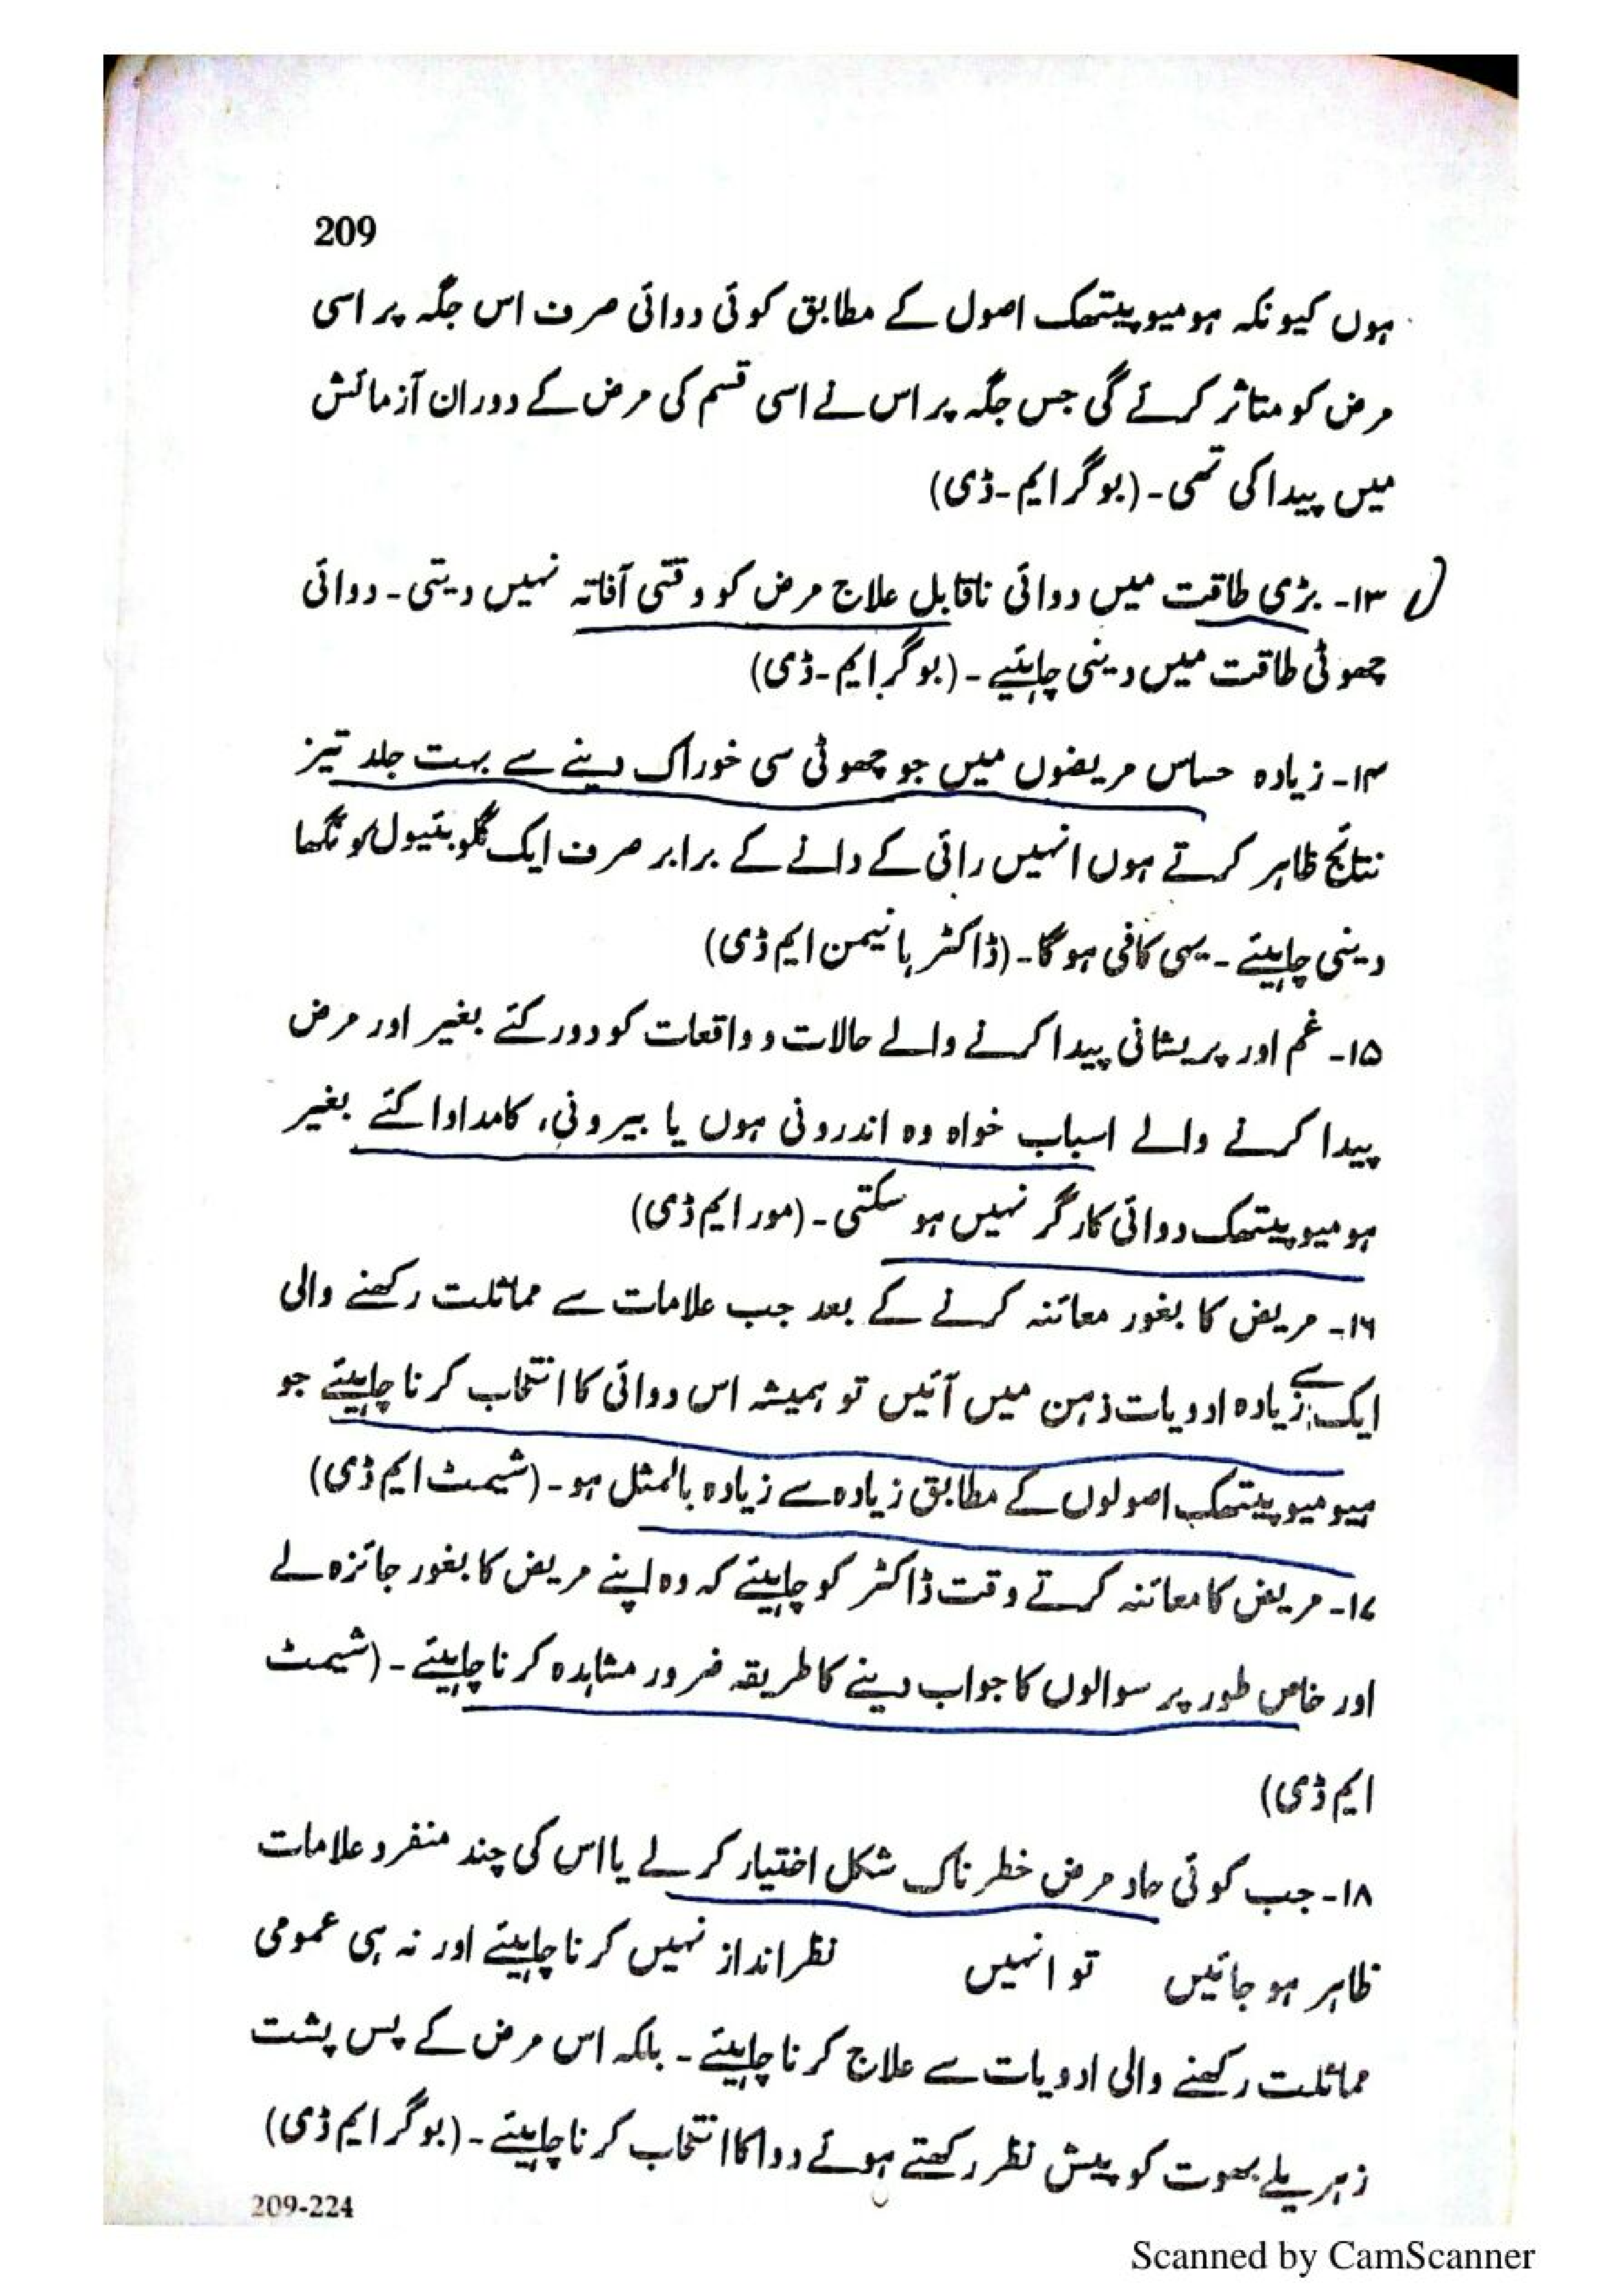 209
ہوں کیونکہ ہومیوپیتھک اصول کے مطابق کوئی دوائی صرف اس جگہ پر اسی
مرض کو متاثر کرئے گی جس جگہ پر اس نے اسی قسم کی مرض کے دوران آزمائش
میں پیدا کی تھی۔ (بوگر ایم۔ڈی)
۱۳۔ بڑی طاقت میں دوائی ناقابل علاج مرض کو وقتی آفاتہ نہیں دیتی۔ دوائی
چھوٹی طاقت میں دینی چاہئیے۔ (بوگر ایم۔ڈی)
۱۴۔ زیادہ حساس مریضوں میں جو چھوٹی سی خوراک دینے سے بہت جلد تیز
نتائج ظاہر کرتے ہوں انہیں رائی کے دانے کے برابر صرف ایک گلوبیئیول کو نگھا
دینی چاہیئے۔ یہی کافی ہو گا۔ (ڈاکٹر ہانیمن ایم ڈی)
۱۵۔ غم اور پریشانی پیدا کرنے والے حالات و واقعات کو دور کئے بغیر اور مرض
پیدا کرنے والے اسباب خواہ وہ اندرونی ہوں یا بیرونی، کا مداوا کئے بغیر
ہومیوپیتھک دوائی کارگر نہیں ہو سکتی۔ (مور ایم ڈی)
۱۶۔ مریض کا بغور معائنہ کرنے کے بعد جب علامات سے مماثلت رکھنے والی
ایک سے زیادہ ادویات ذہن میں آئیں تو ہمیشہ اس دوائی کا انتخاب کرنا چاہیئے جو
ہیومیوپیتھک اصولوں کے مطابق زیادہ سے زیادہ بالمثل ہو۔ (شیمٹ ایم ڈی)
۱۷۔ مریض کا معائنہ کرتے وقت ڈاکٹر کو چاہیئے کہ وہ اپنے مریض کا بغور جائزہ لے
اور خاص طور پر سوالوں کا جواب دینے کا طریقہ ضرور مشاہدہ کرنا چاہیئے۔ (شیمٹ
ایم ڈی)
۱۸۔ جب کوئی حاد مرض خطرناک شکل اختیار کر لے یا اس کی چند منفرد علامات
ظاہر ہو جائیں تو انہیں نظرانداز نہیں کرنا چاہیئے اور نہ ہی عمومی
مماثلت رکھنے والی ادویات سے علاج کرنا چاہیئے۔ بلکہ اس مرض کے پس پشت
زہریلے بھوت کو پیش نظر رکھتے ہوئے دوا کا انتخاب کرنا چاہیئے۔ (بوگر ایم ڈی)
209-224
Scanned by CamScanner